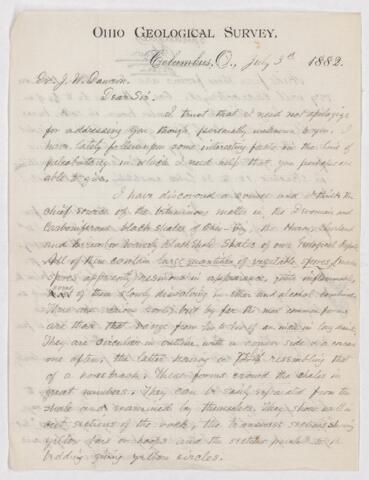 OHIO GEOLOGICAL SURVEY.
Columbus, O., July 3rd 1882.
Dr. J. W. Dawson.
Dear Sir:
I trust that I need not apologize
for addressing you though personally unknown to you. I
have lately fallen upon some interesting facts in the line of
paleobotany in which I need help that you perhaps are
able to give.
I have discovered a source and I think the
chief source of the bituminous matter in the Devonian and
Carboniferous black shales of Ohio viz, the Huron, Cleveland
and Waverly Black Shale of our Geological
All of these contain large quantities of vegetable spores
spores apparently resinous in appearance, quite inflammable,
some of them slowly dissolving in ether and alcohol combined.
There are various sorts, but by far the most common forms
are those that range from to of an inch in long diam.
They are circular in outline, with a convex side & a concave
one often, the latter having a resembling that
of a. These forms crowd the shales in
great numbers. They can be easily separated from the
shale and examined by themselves. They show well in
sections of the rock, the transverse sections showing
yellow bars or hoops and the sections parallel with
bedding giving yellow circles.